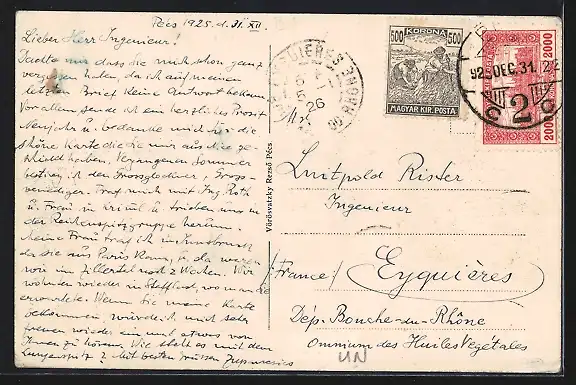 Pécs 1925. d. 31. XII.
Lieber Herr Ingenieur!
Dachte mir dass Sie mich schon ganz
vergessen haben, da ich auf meinen
letzten Brief keine Antwort bekommen.
Vor allem sende ich ein herzliches Prosit
Neujahr u. bedanke mich für die
schöne Karte die Sie mir aus Nice ge-
schickt haben. Vergangenen Sommer
bestieg ich den Grossglockner, Gross-
venediger. Traf mich mit Ing. Roth
u. Frau in u. trieben uns in
der Reichenspitzgruppe herum.
Meine Frau traf ich in Innsbruck
der sie aus Paris kam, u. da waren
wir im Zillertal noch 2 Wochen. Wir
wohnten wieder in wo man Sie
erwartete. Wenn Sie meine Karte
bekommen, würde ich mich sehr
freuen wieder ein mal etwas von
Ihnen zu hören. Wie steht es mit dem
? Mit besten Grüssen
Vörösvatzky Rezső Pécs
EYGUIERES
B. DU RHONE
26
500 KORONA 500
MAGYAR KIR. POSTA
2000
2000
925 DEC. 31.
2
Mr.
Luitpold Rister
Ingenieur
/France/ Eyguières
Dép. Bouche-du-Rhône
Omnium des Huiles Végétales
UN